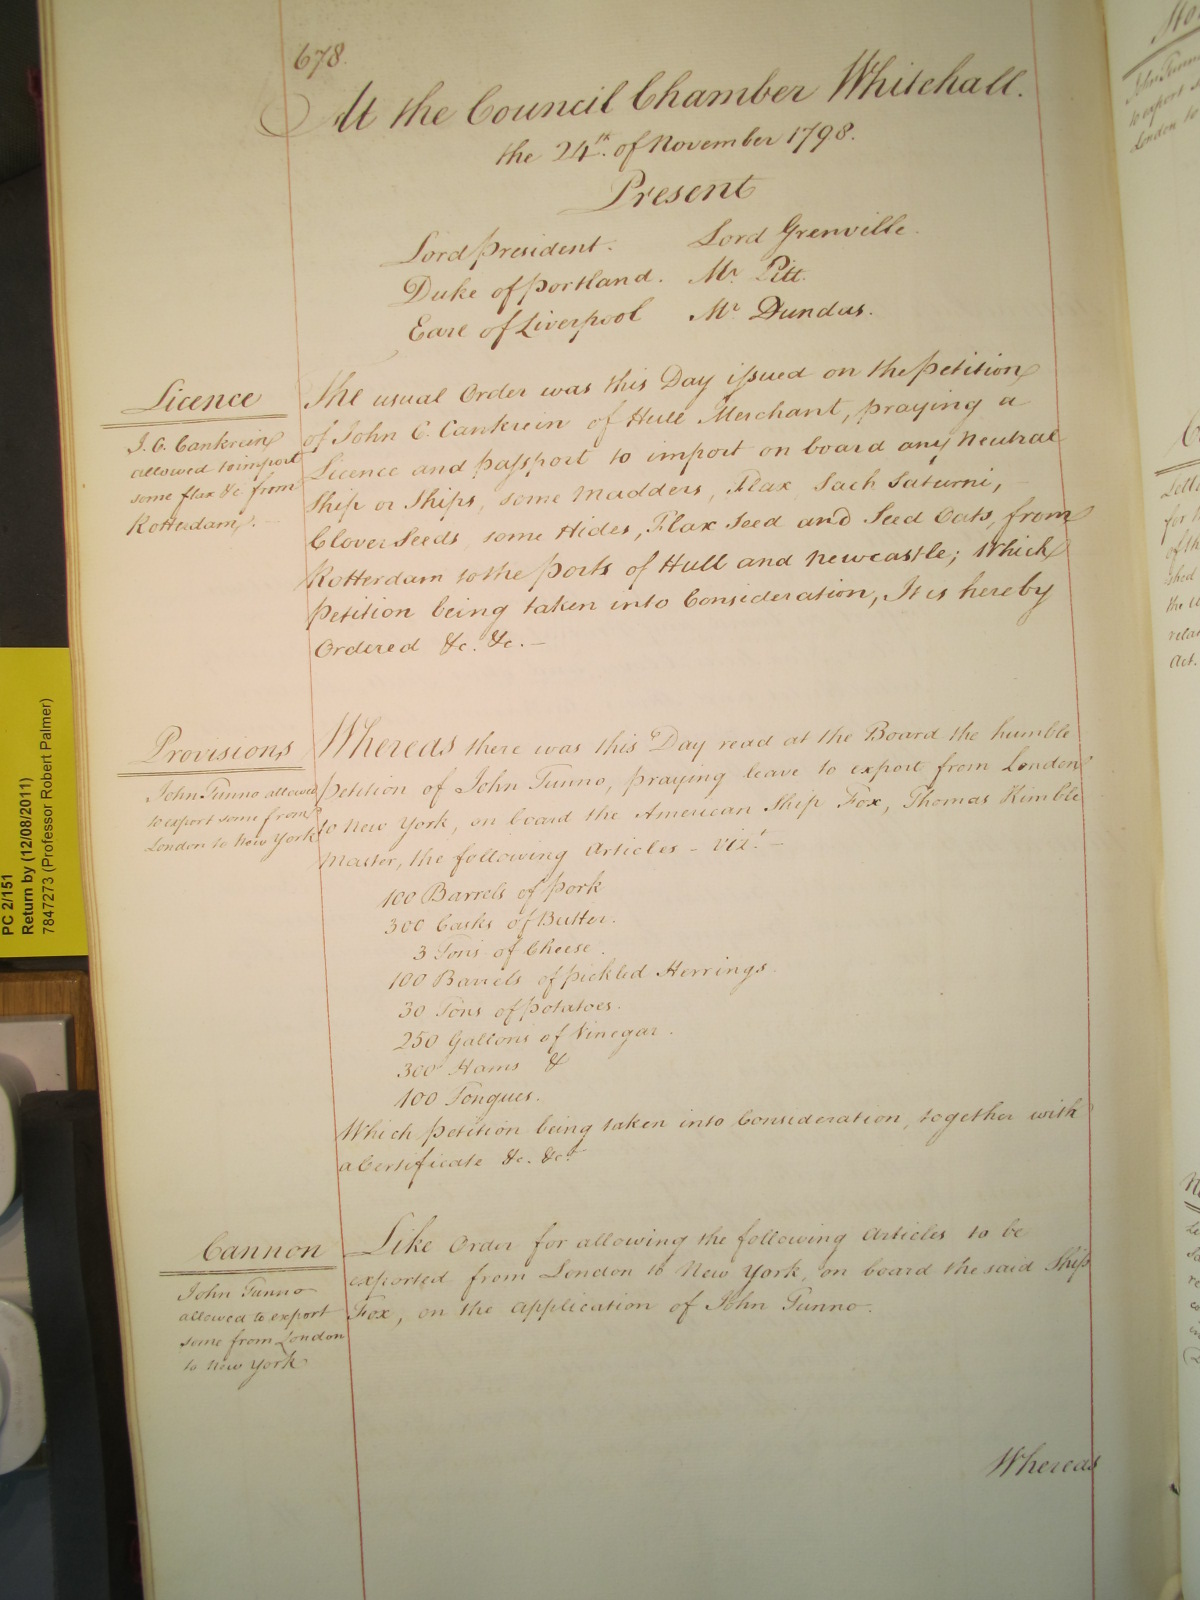 678.
At the Council Chamber Whitehall.
the 24th. of November 1798.
Present
Lord President. Lord Grenville.
Duke of Portland. Mr. Pitt.
Earl of Liverpool Mr. Dundas.
Licence
J. C. Cankrein
allowed to import
some flax &c from
Rotterdam.
The usual Order was this Day issued on the Petition
of John C. Cankrein of Hull Merchant, praying a
Licence and Passport to import on board any Neutral
Ship or Ships, some Madders, Flax, Sach Saturni,
Clover Seeds, some Hides, Flax Seed and Seed Oats, from
Rotterdam to the Ports of Hull and Newcastle; Which
Petition being taken into Consideration, It is hereby
Ordered &c. &c. —
Provisions
John Tunno allowed
to export some from
London to New York
Whereas there was this Day read at the Board the humble
Petition of John Tunno, praying leave to export from London
to New York, on board the American Ship Fox, Thomas Kimble
Master, the following Articles - vizt. —
100 Barrels of Pork
300 Casks of Butter.
3 Tons of Cheese.
100 Barrels of Pickled Herrings.
30 Tons of Potatoes.
250 Gallons of Vinegar.
300 Hams &
100 Tongues.
Which Petition being taken into Consideration, together with
a Certificate &c. &c.
Cannon
John Tunno
allowed to export
some from London
to New York
Like Order for allowing the following Articles to be
exported from London to New York, on board the said Ship
Fox, on the Application of John Tunno.
Whereas
PC 2/151
Return by (12/08/2011)
7847273 (Professor Robert Palmer)
John Tunno
to export
London to
for
of the
the
Act.